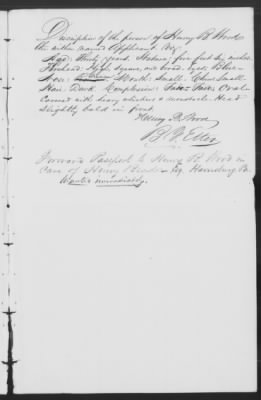 Description of the person of Henry B. Wood
the within named Applicant. Viz
Age: Thirty years. Stature; five feet six inches.
Forehead: High square and broad. Eyes: Blue
Nose: Mouth: Small. Chin: Small
Hair: Dark. Complexion: Pale. Face: Oval
Covered with heavy whiskers & moustache. Head
slightly bald in front.
Henry B. Wood
B. F. Etter
Forward Passport to Henry B. Wood in
care of Henry Esq. Harrisburg Pa.
Wanted immediately.